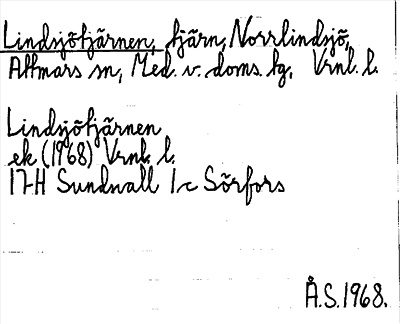 Lindsjötjärnen, tjärn, Norrlindsjö,
Attmars sn, Med. v. doms. tg. Vrnl. l.
Lindsjötjärnen
ek (1968) Vrnl. l.
17H Sundsvall 1c Sörfors
Å.S. 1968.